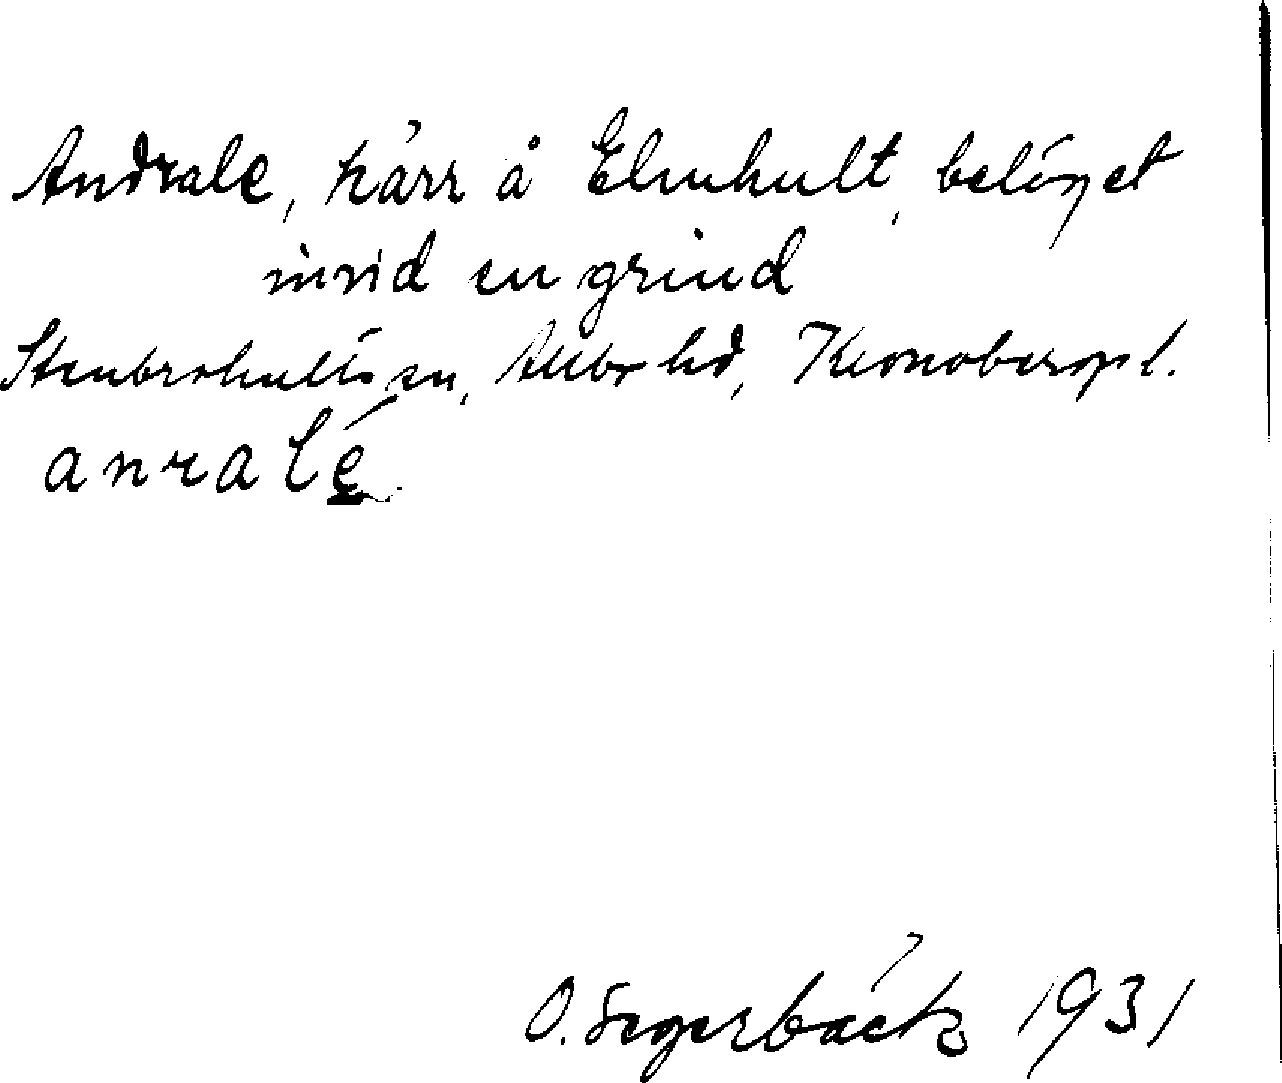 Andrale, kärr å Elmhult, beläget
invid en grind
Stenbrohults sn, Allbo hd, Kronobergs l.
anralé
O. Segerbäck 1931